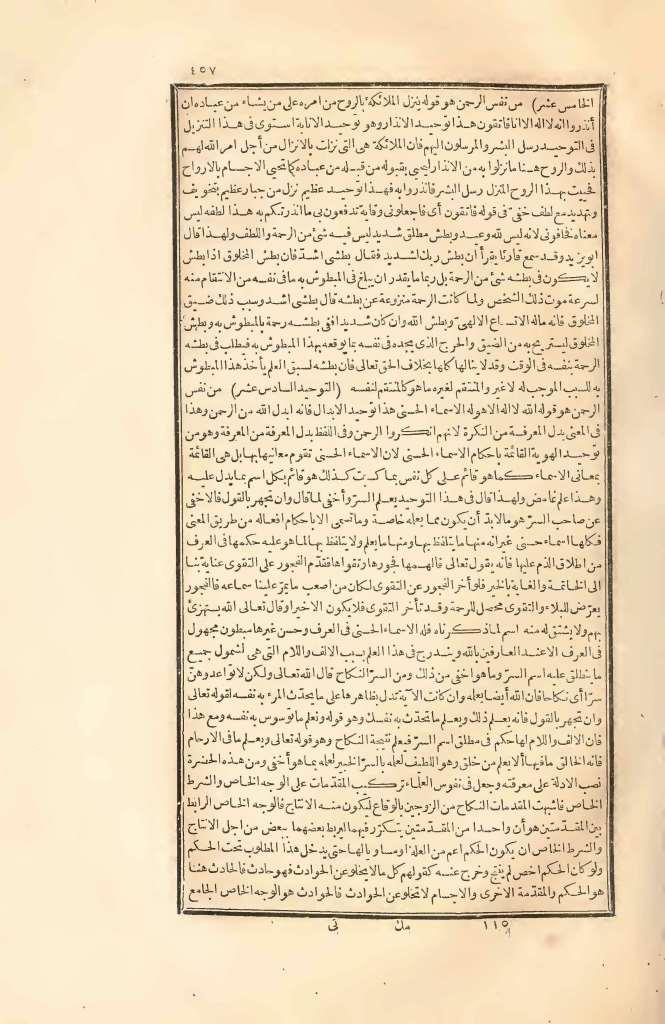 ٤٥٧
الخامس عشر) من نفس الرحمن هو قوله ينزل الملائكة بالروح من امره على من يشاء من عباده ان
أنذروا انه لا اله الا انا فاتقون هذا توحيد الانذار وهو توحيد الانابة استوى فى هذا التنزيل
فى التوحيد رسل البشر والمرسلون اليهم فان الملائكة هى التى نزلت بالانزال من أجل امر الله لهم
بذلك والروح هنا ما نزلوا به من الانذار ليحيى بقبوله من قبله من عباده كما تحيى الاجسام بالارواح
فحييت بهذا الروح المنزل رسل البشر فانذروا به فهذا توحيد عظيم نزل من جبار عظيم بتخويف
وتهديد مع لطف خفىّ فى قوله فاتقون أى فاجعلونى وقاية تدفعون بى ما انذرتكم به هذا لطفه ليس
معناه فخافونى لانه ليس لله وعيد وبطش مطلق شديد ليس فيه شئ من الرحمة واللطف ولهذا قال
ابو يزيد وقد سمع قارئا يقرأ ان بطش ربك لشديد فقال بطشى اشد فان بطش المخلوق اذا بطش
لا يكون فى بطشه شئ من الرحمة بل ربما ما يقدر ان يبلغ فى المبطوش به ما فى نفسه من الانتقام منه
لسرعة موت ذلك الشخص ولما كانت الرحمة منزوعة عن بطشه قال بطشى اشد وسبب ذلك ضيق
المخلوق فانه ماله الاتساع الالهىّ وبطش الله وان كان شديدا ففى بطشه رحمة بالمبطوش به وبطش
المخلوق ليستريح به من الضيق والحرج الذى يجده فى نفسه بما يوقعه بهذا المبطوش به فيطلب فى بطشه
الرحمة بنفسه فى الوقت وقد لا ينالها كلها بخلاف الحق تعالى فان بطشه لسبق العلم بأخذ هذا المبطوش
به للسبب الموجب له لا غير والمنتقم لغيره ما هو كالمنتقم لنفسه (التوحيد السادس عشر) من نفس
الرحمن هو قوله الله لا اله الا هو له الاسماء الحسنى هذا توحيد الابدال فانه ابدل الله من الرحمن وهذا
فى المعنى بدل المعرفة من النكرة لانهم انكروا الرحمن وفى اللفظ بدل المعرفة من المعرفة وهو من
توحيد الهوية القائمة باحكام الاسماء الحسنى لان الاسماء الحسنى تقوم معانيها بها بل هى القائمة
بمعانى الاسماء كما هو قائم على كل نفس بما كسبت كذلك هو قائم بكل اسم بما يدل عليه
وهذا علم غامض ولهذا قال فى هذا التوحيد يعلم السرّ وأخفى لما قال وان تجهر بالقول فالاخفى
عن صاحب السرّ هو ما لا بدّ أن يكون مما يعلمه خاصة وما تسمى الا باحكام افعاله من طريق المعنى
فكلها اسماء حسنى غير انه منها ما يتلفظ بها ومنها ما يعلم ولا يتلفظ بها لما هو عليه حكمها فى العرف
من اطلاق الذم عليها فانه يقول تعالى فالهمها فجورها وتقواها فقدّم الفجور على التقوى عناية بنا
الى الخاتمة والغاية بالخير فلو أخر الفجور عن التقوى لكان من اصعب ما يمرّ علينا سماعه فالفجور
يعرّض للبلاء والتقوى محصل للرحمة وقد تأخر التقوى فلا يكون الا خيرا وقال تعالى الله يستهزئ
بهم ولا يشتق له منه اسم لما ذكرناه فله الاسماء الحسنى فى العرف وحسن غيرها مبطون مجهول
فى العرف الا عند العارفين بالله ويندرج فى هذا العلم بسبب الالف واللام التى هى لشمول جميع
ما ينطلق عليه اسم السرّ وما هو اخفى من ذلك ومن السرّ النكاح قال الله تعالى ولكن لا تواعدوهنّ
سرّا أى نكاحا فان الله أيضا يعلمه وان كانت الآية تدل بظاهرها على ما يحدّث المرء به نفسه لقوله تعالى
وان تجهر بالقول فانه يعلم ذلك ويعلم ما تحدّث به نفسك وهو قوله ونعلم ما توسوس به نفسه ومع هذا
فان الالف واللام لها حكم فى مطلق اسم السرّ فيعلم نتيجة النكاح وهو قوله تعالى ويعلم ما فى الارحام
فانه الخالق ما فيها ألا يعلم من خلق وهو اللطيف لعلمه بالسرّ الخبير لعلمه بما هو أخفى ومن هذه الحضرة
نصب الادلة على معرفته وجعل فى نفوس العلماء تركيب المقدمات على الوجه الخاص والشرط
الخاص فاشبهت المقدمات النكاح من الزوجين بالوقاع ليكون منه الانتاج فالوجه الخاص الرابط
بين المقدمتين هو أن واحدا من المقدمتين يتكرّر فيهما ليربط بعضهما ببعض من اجل الانتاج
والشرط الخاص ان يكون الحكم اعم من العلة او مساويا لها حتى يدخل هذا المطلوب تحت الحكم
ولو كان الحكم اخص لم ينتج وخرج عنه كقولهم كل ما لا يخلو عن الحوادث فهو حادث فالحادث هنا
هو الحكم والمقدّمة الاخرى والاجسام لا تخلو عن الحوادث فالحوادث هو الوجه الخاص الجامع
١١٥ مك نى